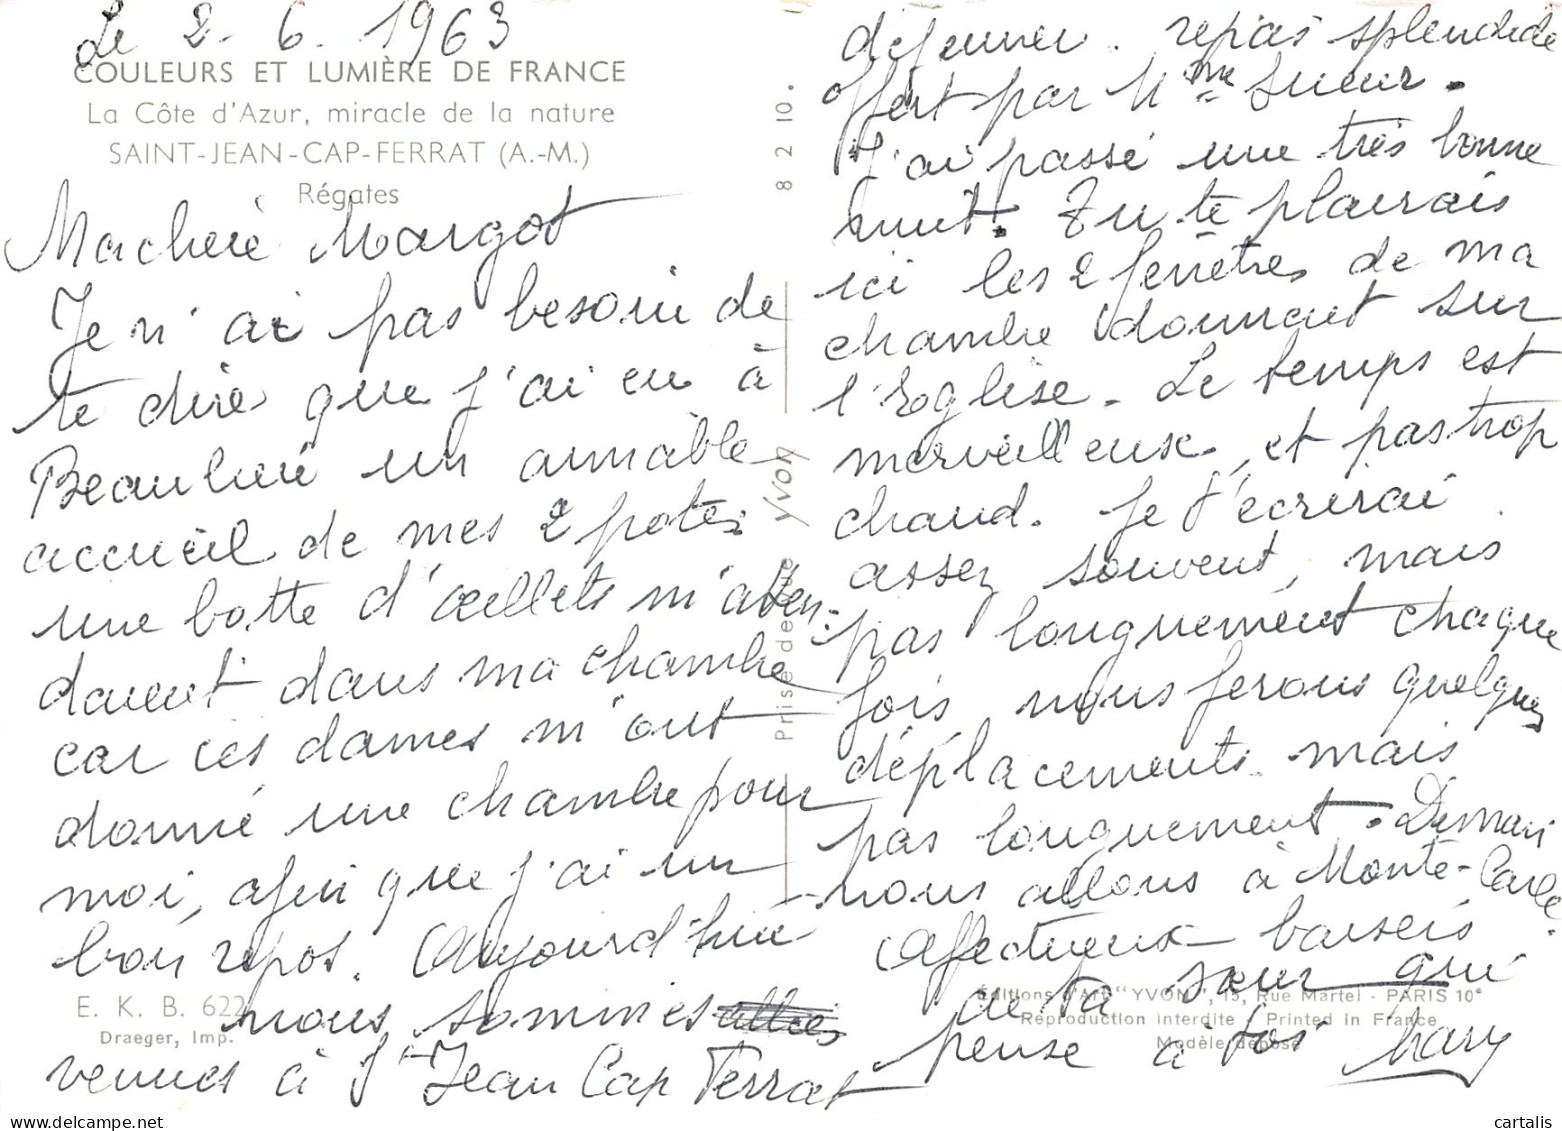 Le 2-6.1963
COULEURS ET LUMIÈRE DE FRANCE
La Côte d'Azur, miracle de la nature
SAINT-JEAN-CAP-FERRAT (A.-M.)
Régates
Ma chère Margot
Je n'ai pas besoin de
te dire que j'ai eu à
Beaulieu un aimable
accueil de mes 2 potes
une botte d'œillets m'atten-
daient dans ma chambre
car ces dames m'ont
donné une chambre pour
moi, afin que j'ai un
bon repos. Aujourd'hui
nous sommes
venues à St Jean Cap Ferrat
E. K. B. 622
Draeger, Imp.
8 2 10.
Prise de vue Yvon
déjeuner. repas splendide
offert par Mme Sueur.
J'ai passé une très bonne
nuit! Tu te plairais
ici les 2 fenêtres de ma
chambre donnant sur
l'Eglise. Le temps est
merveilleux, et pas trop
chaud. Je t'écrirai
assez souvent, mais
pas longuement chaque
fois nous ferons quelques
déplacements mais
pas longuement. Demain
nous allons à Monte-Carlo.
Affectueux baisers
de ta sœur qui
pense à toi Mary
Éditions d'Art "YVON", 15, Rue Martel - PARIS 10e
Reproduction interdite - Printed in France
Modèle déposé
cartalis